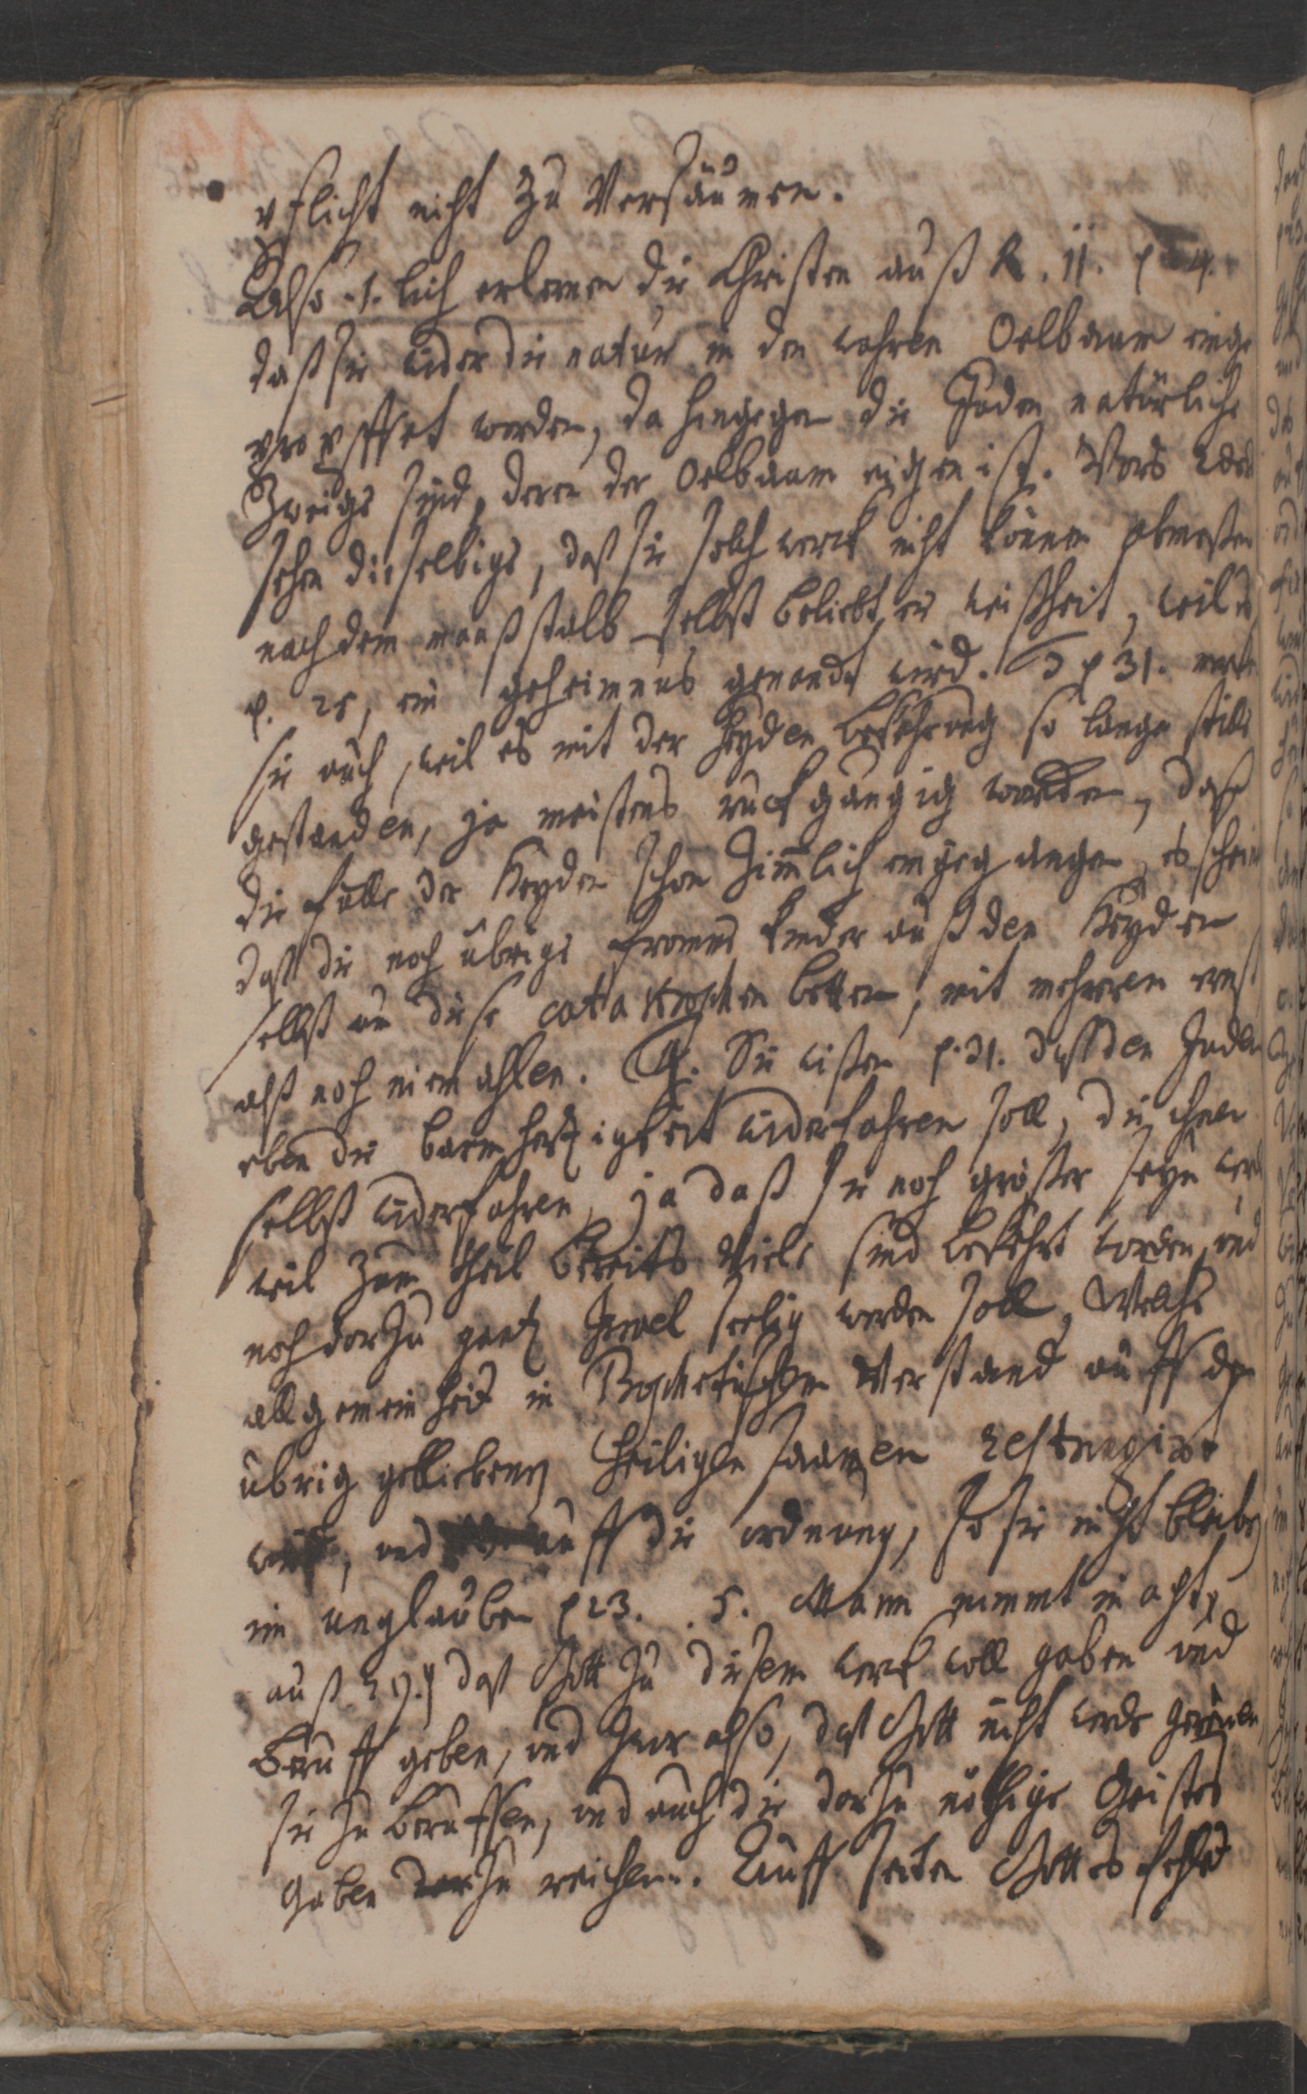 pflicht nicht zu Versäumen.
Also 1. lich erlernen die Christen auß R. 11. p 4
daß sie wider die natur in den wahren Oelbaum einge
propffet worden, da hingegen die Juden natürliche
Zweige sind, deren der Oelbaum eigen ist. Vors
sehen dieselbige, daß sie solch werck nicht können abmeßen
nach dem maaßstab selbst beliebter weißheit, weil es
p. 25, ein geheimnus genandt wird. 3 p 31. merken
sie auch, weil es mit der Heyden bekehrung so lange still
gestanden, ja meistens ruckgängig worden, daß
die fülle der Heyden schon zimlich eingegangen, es schein
daß die noch übrige fromme kinder auß den Heyden
selbst um diese catastrophen betten, mit mehrerem ernst
alß noch niemahlen. 4. Sie wißen p. 31. daß den Juden
eben die barmhertzigkeit widerfahren soll, die ihnen
selbst widerfahren, ja daß sie noch größer seyn werd
weil zum theil bereits viele sind bekehrt worden, und
noch darzu gantz Israel seelig werden soll, Welche
allgemeinheit in Prophetischen Verstand auff den
übrig gebliebenen heiligen saamen restringirt
wird, und auff die ordnung, so sie nicht bleiben
im unglauben p 23. 5. Mann nimmt in acht,
auß 29. daß Gott zu diesem werck woll gaben und
beruff geben, und zwar also, daß Gott nicht werde gereuen
sie zu beruffen, und auch die darzu nöthige Geistes
Gaben darzu reichen. Auff seiten Gottes fehlet